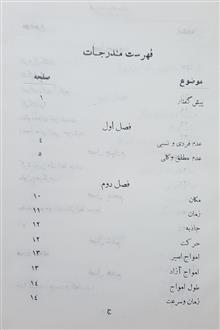 فهرست مندرجات
موضوع صفحه
پیش گفتار ۱
فصل اول
عدم فردی و نسبی ٤
عدم مطلق وکلی ٥
فصل دوم
مکان ۱۰
زمان ۱۱
جاذبه ۱۲
حرکت ۱۲
امواج اسیر ۱۳
امواج آزاد ۱۳
طول امواج ۱٤
زمان وسرعت ۱٤
ج